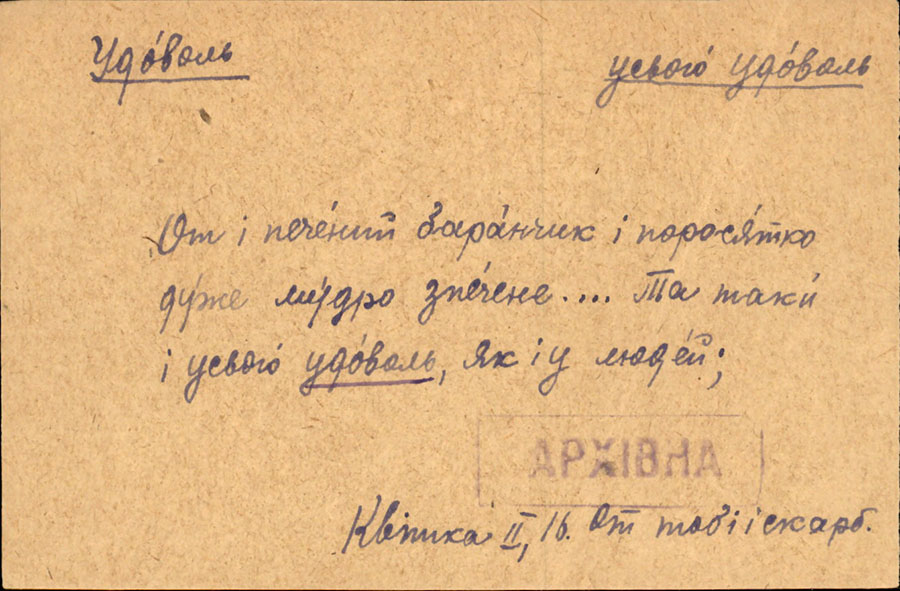 Удо́воль
усього́ удо́воль
От і пече́ний бара́нчик і порося́тко
ду́же му́дро зпе́чене.... Та таки́
і усього́ удо́воль, як і у люде́й;
АРХІВНА
Квітка II, 16. От тобі і скарб.